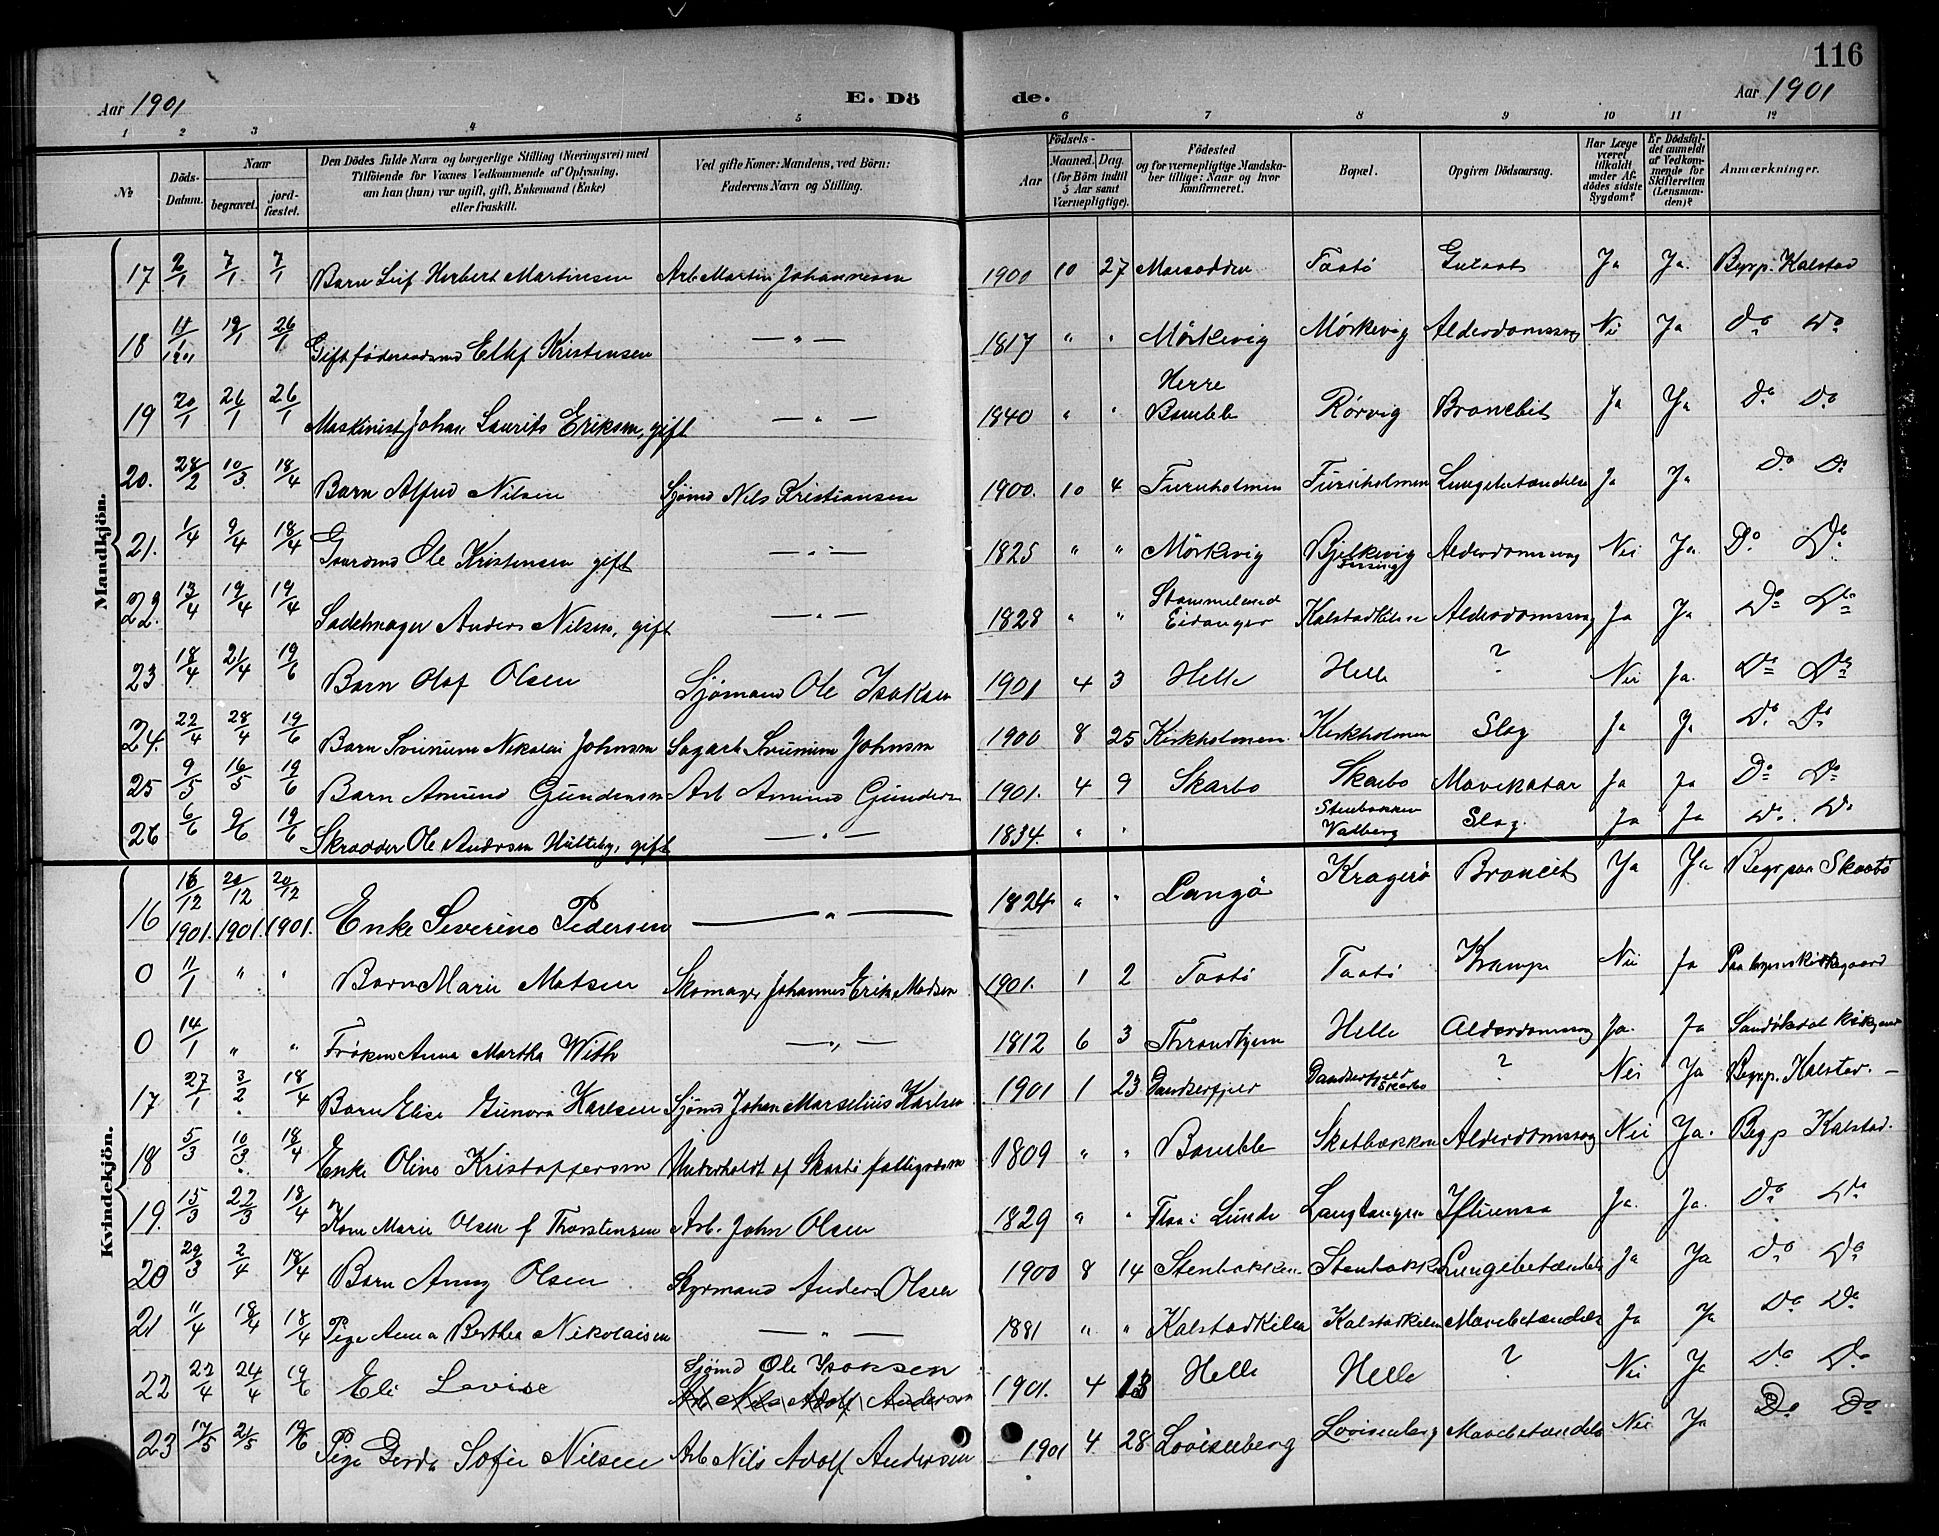 116
Aar 1901 E. Dö de. Aar 1901
1 2 3 4 5 6 7 8 9 10 11 12
№ Döds-Datum. Naar begravet. jord-fæstet. Den Dödes fulde Navn og borgerlige Stilling (Næringsvei) med Tilföiende for Voxnes Vedkommende af Oplysning, om han (hun) var ugift, gift, Enkemand (Enke) eller fraskilt. Ved gifte Koner: Mandens, ved Börn: Faderens Navn og Stilling. Aar Födsels- Maaned. Dag. (for Börn indtil 5 Aar samt Værnepligtige). Födested og for værnepligtige Mandskaber tillige: Naar og hvor konfirmeret. Bopæl. Opgiven Dödsaarsag. Har Læge været tilkaldt under Afdödes sidste Sygdom? Er Dödsfaldet anmeldt af Vedkommende for Skifteretten (Lensmanden)? Anmærkninger.
Mandkjön.
17 2/1 7/1 7/1 Barn Leif Herbert Martinsen Arb Martin Johannesen 1900 10 27 Taatö Ja Ja. Begrp. Kalstad
18 11/1 1901 19/1 26/1 Gift föderaadsmd Ellef Kristensen — " — 1817 " " Mörkevig Mörkevig Alderdomssvag Nei Ja Do Do
19 20/1 26/1 26/1 Maskinist Johan Laurits Eriksen, gift — " — 1840 " " Herre Bamble Rörvig Bronchit Ja Ja Do Do
20. 28/2 10/3 18/4 Barn Alfred Nilsen Sjömd Nils Kristiansen 1900. 10 4 Furuholmen Furuholmen Lungebetændelse Ja Ja Do Do
21. 1/4 9/4 18/4 Gaardmd Ole Kristensen gift — " — 1825 " " Mörkevig Bjelkevig Alderdomssvag Nei Ja Do Do
22. 13/4 19/4 19/4 Sadelmager Anders Nilsen, gift — " — 1828 " " Eidanger Kalstadkilen Alderdomssvag Ja Ja Do Do
23 18/4 21/4 19/6 Barn Olaf Olsen Sjömand Ole Isaksen 1901 4 3 Helle Helle ? Nei Ja. Do Do
24. 22/4 28/4 19/6 Barn Nikolai Johnsen Sagarb Johnsen 1900 8 25 Kirkholmen Kirkholmen Slag Ja Ja Do Do
25 9/5 16/5 19/6 Barn Amund Gundersen Arb Amund Gunders 1901. 4 9 Skarbo Skarbo Mavekatar Ja Ja Do Do
26 6/6 9/6 19/6 Skrædder Ole Andersen gift — " — 1834. " " Stenbakken Valberg Slag Ja Ja Do Do
Kvindekjön.
16 16/12 1901. 20/12 1901. 20/12 1901. Enke Severine Pedersen — " — 1824 " " Langö Kragerö Broncit Ja Ja Begr paa Skaatö
0 11/1 " " Barn Marie Matsen Skomager Johannes Erik Madsen 1901. 1 2 Taatö Taatö Krampe Nei Ja Paa byens kirkegaard
0 14/1 " " Fröken Anna Martha With — " — 1812 6 3 Throndhjem Helle Alderdomssvag Ja. Ja Sandökedal Kirkegaard
17 27/1 3/2 18/4 Barn Elise Gunora Karlsen Sjömd Johan Marselius Karlsen 1901 1 23 Dandserfjeld Dandserfjeld Skarbo ? Nei Ja Begrp. Kalstad. —
18 5/3 10/3 18/4 Enke Oline Kristoffersen Underholdt af Skaatö fattigvæsen 1809 " " Bamble Skatbakken Alderdomssvag Nei Ja. Begrp Kalstad.
19. 15/3 22/3 18/4 Kone Marie Olsen f Thorstensen Arb. John Olsen 1829 " " Flaa i Lunde Langtangen Ifluensa Ja. Ja. Do Do
20 29/3 2/4 18/4 Barn Anny Olsen Styrmand Anders Olsen 1900 8 14 Stenbakken Stenbakken Lungebetændelse Ja Ja Do Do
21 11/4 18/4 18/4 Pige Anna Berthea Nikolaisen — " — 1881 " " Kalstadkilen Kalstadkilen Mavebetændelse Ja Ja Do Do
22 22/4 24/4 19/6 Eli Lovise Sjömd Ole Isaksen Arb Nils Adolf Andersen 1901. 4 13 Helle Helle ? Nei Ja Do Do
23 17/5 21/5 19/6 Pige Gerda Sofie Nilsen Arb Nils Adolf Andersen 1901 4 28 Lovisenberg Lovisenberg Mavebetændelse Nei Ja Do Do